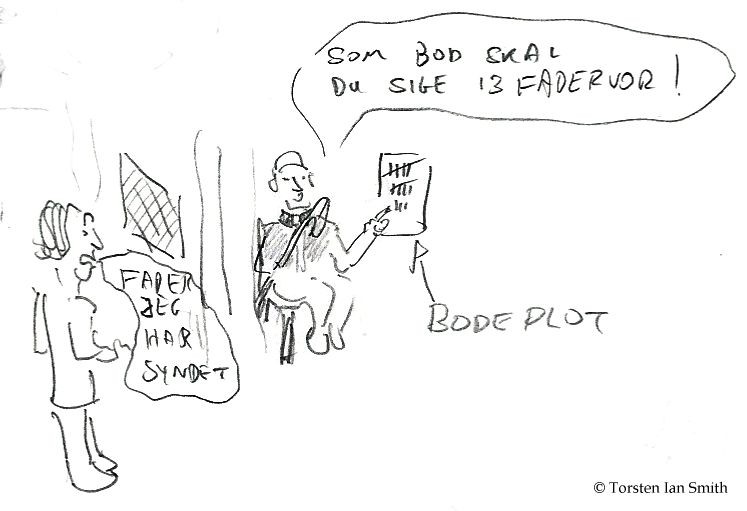 SOM BOD SKAL
DU SIGE 13 FADERVOR!
FADER
JEG
HAR
SYNDET
BODE PLOT
© Torsten Ian Smith